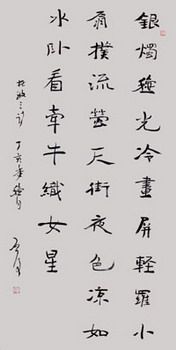 銀燭秋光冷畫屏輕羅小
扇撲流螢天街夜色涼如
水卧看牽牛織女星
杜牧之詩 丁亥年